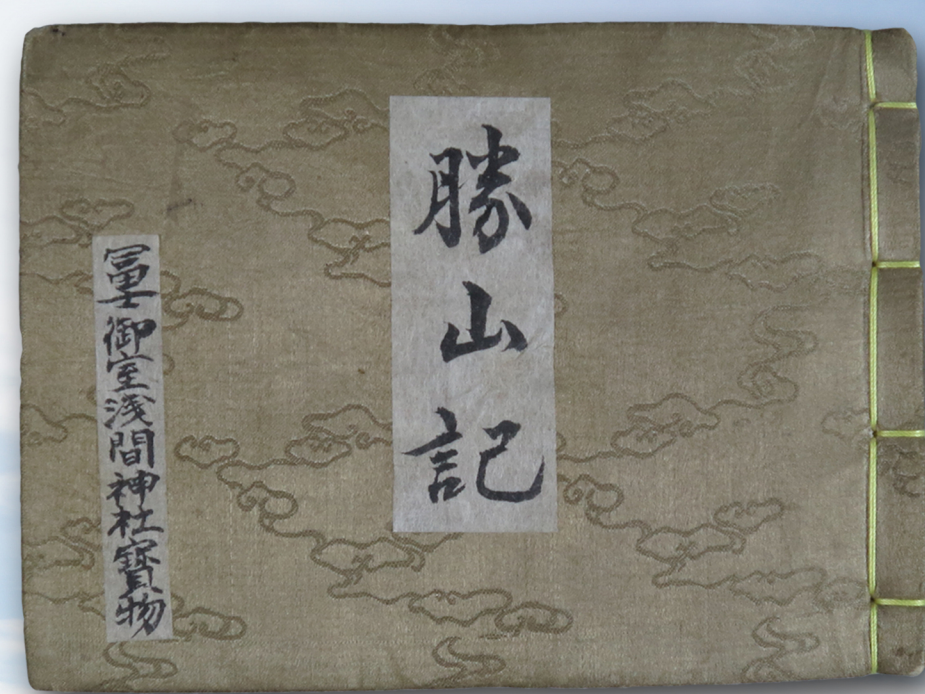 勝山記
冨士御室浅間神社寳物